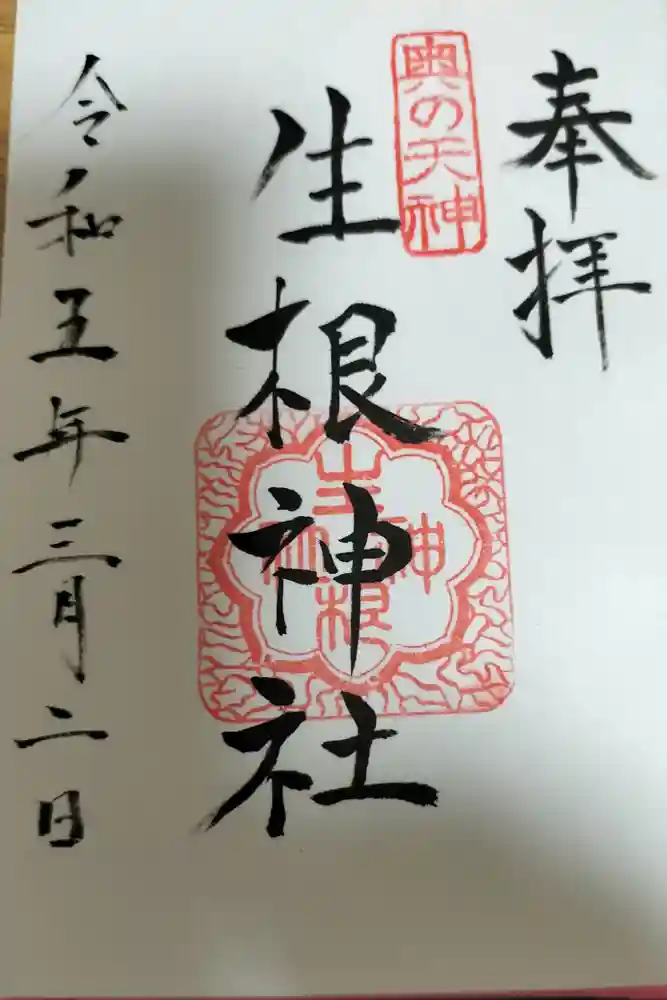 奉拝
奥の天神
生根神社
生根神社
令和五年三月二日